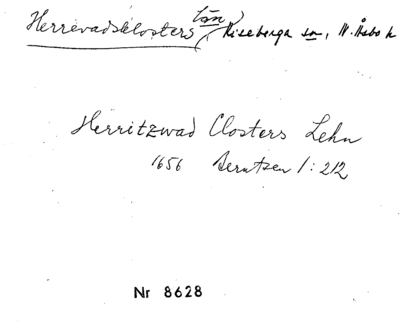 Herrevadsklosters län, Riseberga sn, N. Åsbo h
Herritzwad Closters Lehn
1656 Berntsen 1:212
Nr 8628